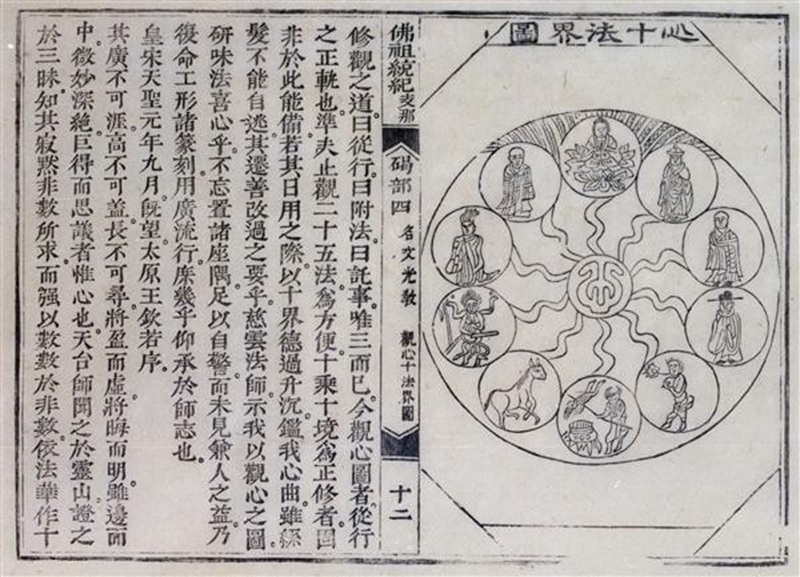 心十法界圖
佛祖統紀 支那
碣部四 名文光教 觀心十法界圖
十二
修觀之道曰從行曰附法曰託事。唯三而已。今觀心圖者。從行
之正軌也。準夫止觀二十五法為方便。十乘十境為正修者。固
非於此能備。若其日用之際。以十界德過升沉。鑑我心曲。雖絲
髮不能自逃。其遷善改過之要乎。慈雲法師示我以觀心之圖。
研味法喜。心乎不忘。置諸座隅。足以自警。而未見兼人之益。乃
復命工形諸篆刻。用廣流行。庶幾乎仰承於師志也。
皇宋天聖元年九月。既望。太原王欽若序。
其廣不可涯。高不可蓋。長不可尋。將盈而虛。將晦而明。雖邊而
中。微妙深絕。巨得而思議者。惟心也。天台師聞之於靈山。證之
於三昧。知其寂默非數所求。而強以數數於非數。依法華作十